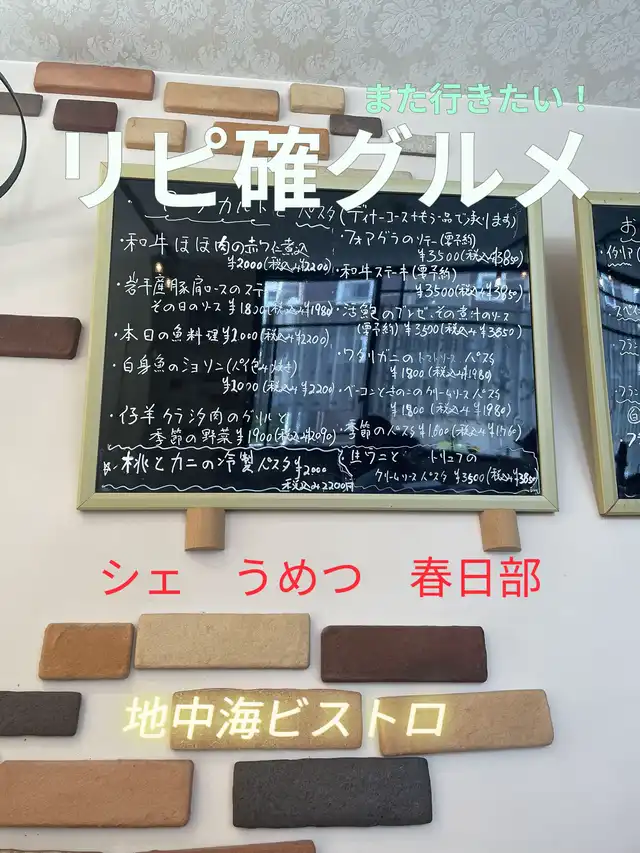 また行きたい！
リピ確グルメ
パスタ(ディナーコース+もう一品で承ります)
・和牛ほほ肉の赤ワイン煮込
¥2000(税込み¥2200)
・岩手産豚肩ロースのステ
その日のソース ¥1800(税込み¥1980)
・本日の魚料理 ¥2000(税込み¥2200)
・白身魚の
¥2000(税込み¥2200)
・仔羊
季節の野菜 ¥1900(税込み¥2090)
桃とカニの冷製パスタ ¥2000
税込み2200円
・フォアグラのソテー(要予約)
¥3500(税込み¥3850)
・和牛ステーキ(要予約)
¥3500(税込み¥3850)
・活鮑のブレゼ・その
(要予約) ¥3500(税込み¥3850)
・ワタリガニのトマトソースパスタ
¥1800(税込み¥1980)
・ベーコンときのこのクリームソースパスタ
¥1800(税込み¥1980)
・季節のパスタ ¥1600(税込み¥1760)
・生ウニと トリュフの
クリームソースパスタ ¥3500(税込み¥3850)
シェ うめつ 春日部
地中海ビストロ